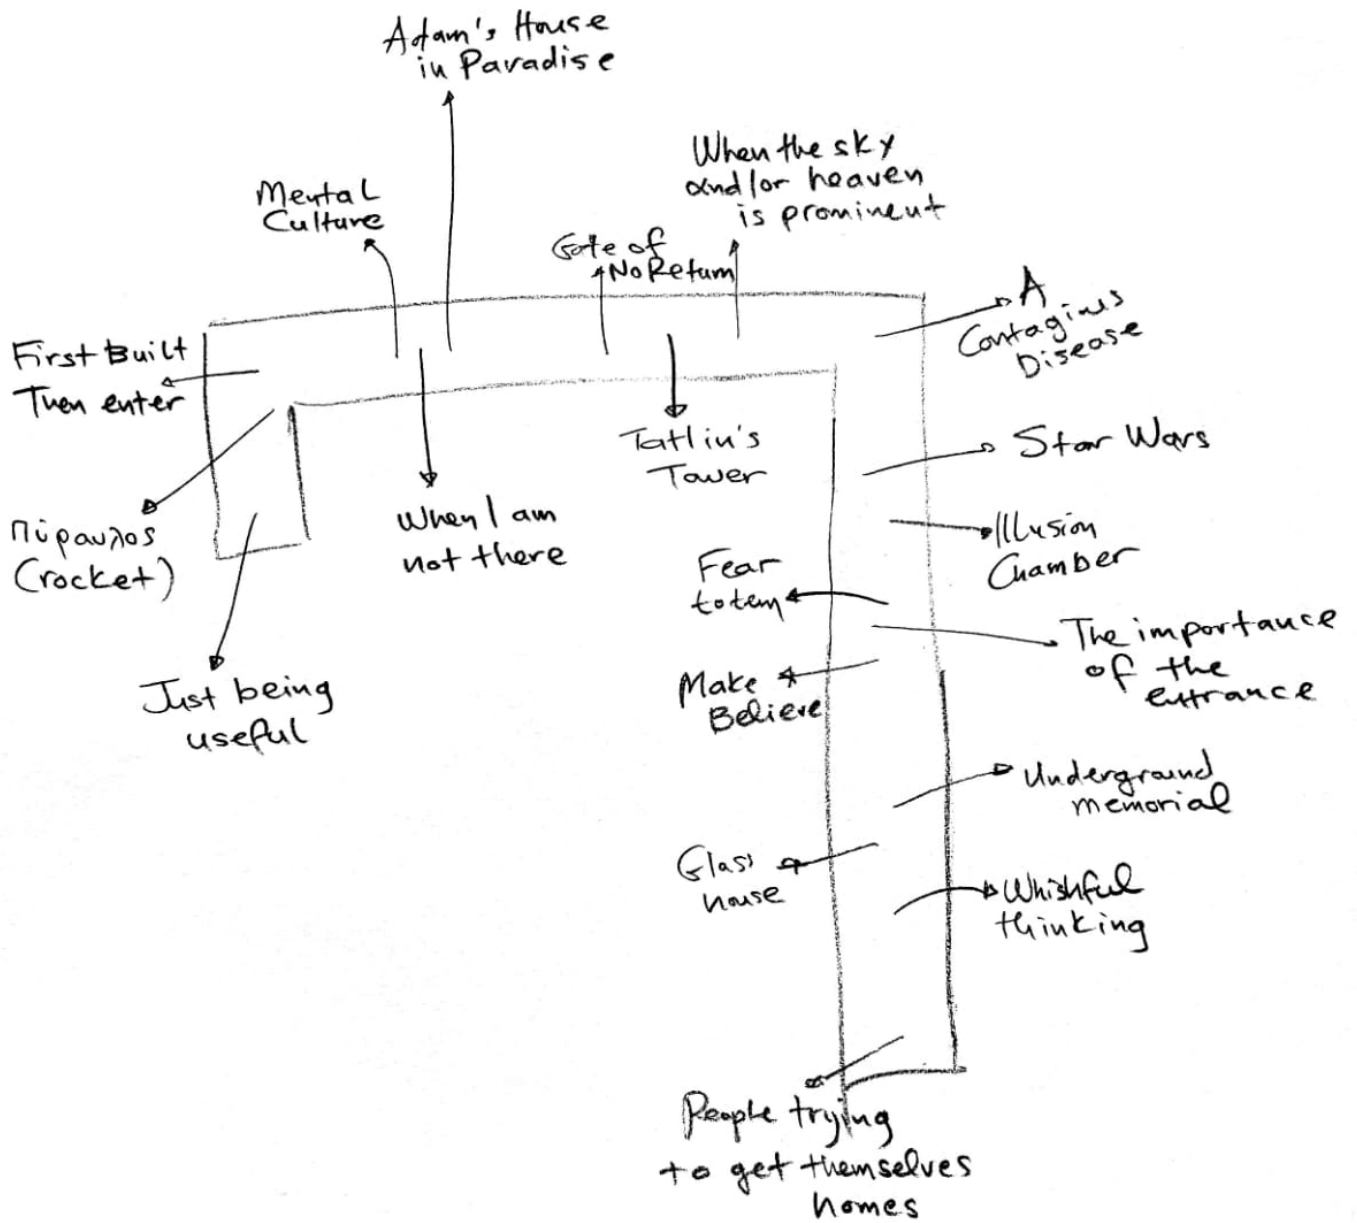 Adam's House
in Paradise
When the sky
and/or heaven
is prominent
Mental
Culture
Gate of
No Return
A
Contagius
Disease
First Built
Then enter
Tatlin's
Tower
Star Wars
Πύραυλος
(rocket)
When I am
not there
Illusion
Chamber
Fear
totem
The importance
of the
entrance
Just being
useful
Make
Believe
Underground
memorial
Glass
house
Whishful
thinking
People trying
to get themselves
homes